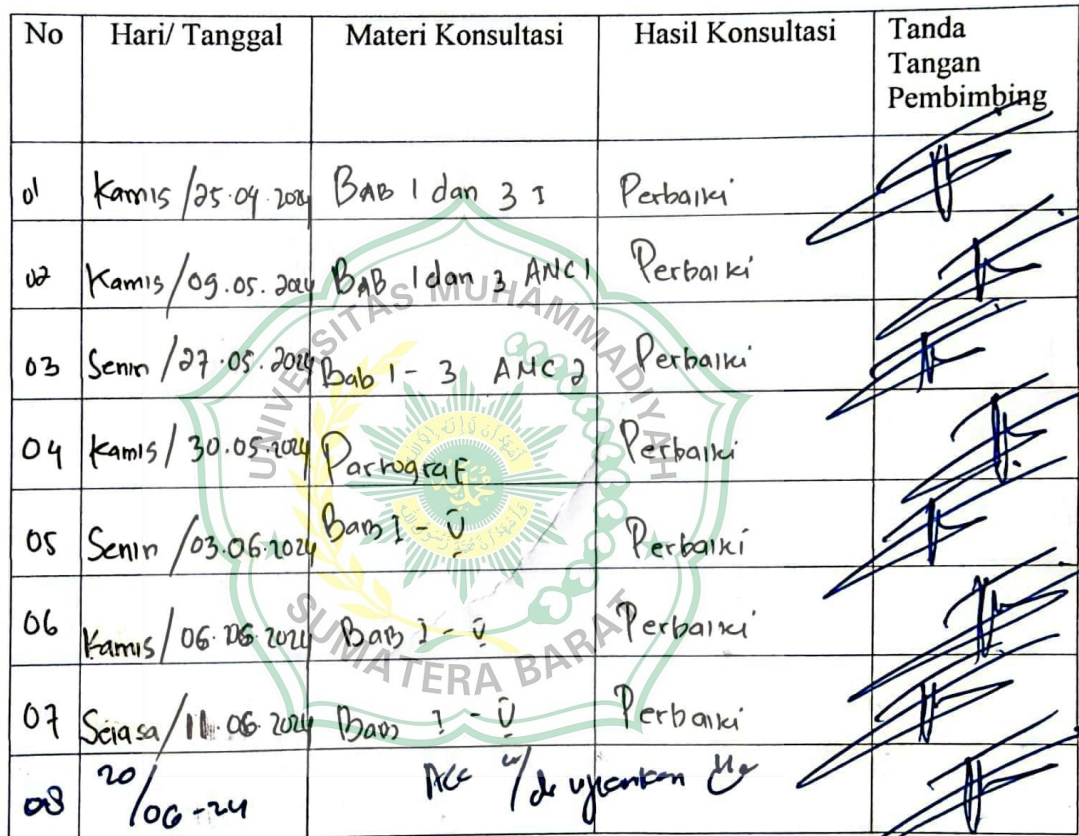 No Hari/ Tanggal Materi Konsultasi Hasil Konsultasi Tanda
Tangan
Pembimbing
01 Kamis /25.04.2024 BAB 1 dan 3 I Perbaiki
02 Kamis/09.05.2024 BAB 1 dan 3 ANC 1 Perbaiki
03 Senin /27.05.2024 Bab 1 - 3 ANC 2 Perbaiki
04 Kamis / 30.05.2024 Partograf Perbaiki
05 Senin /03.06.2024 Bab I - V Perbaiki
06 Kamis / 06.06.2024 Bab I - V Perbaiki
07 Selasa /11.06.2024 Bab I - V Perbaiki
08 20/06-24 Acc u/ di ujiankan
UNIVERSITAS MUHAMMADIYAH
SUMATERA BARAT